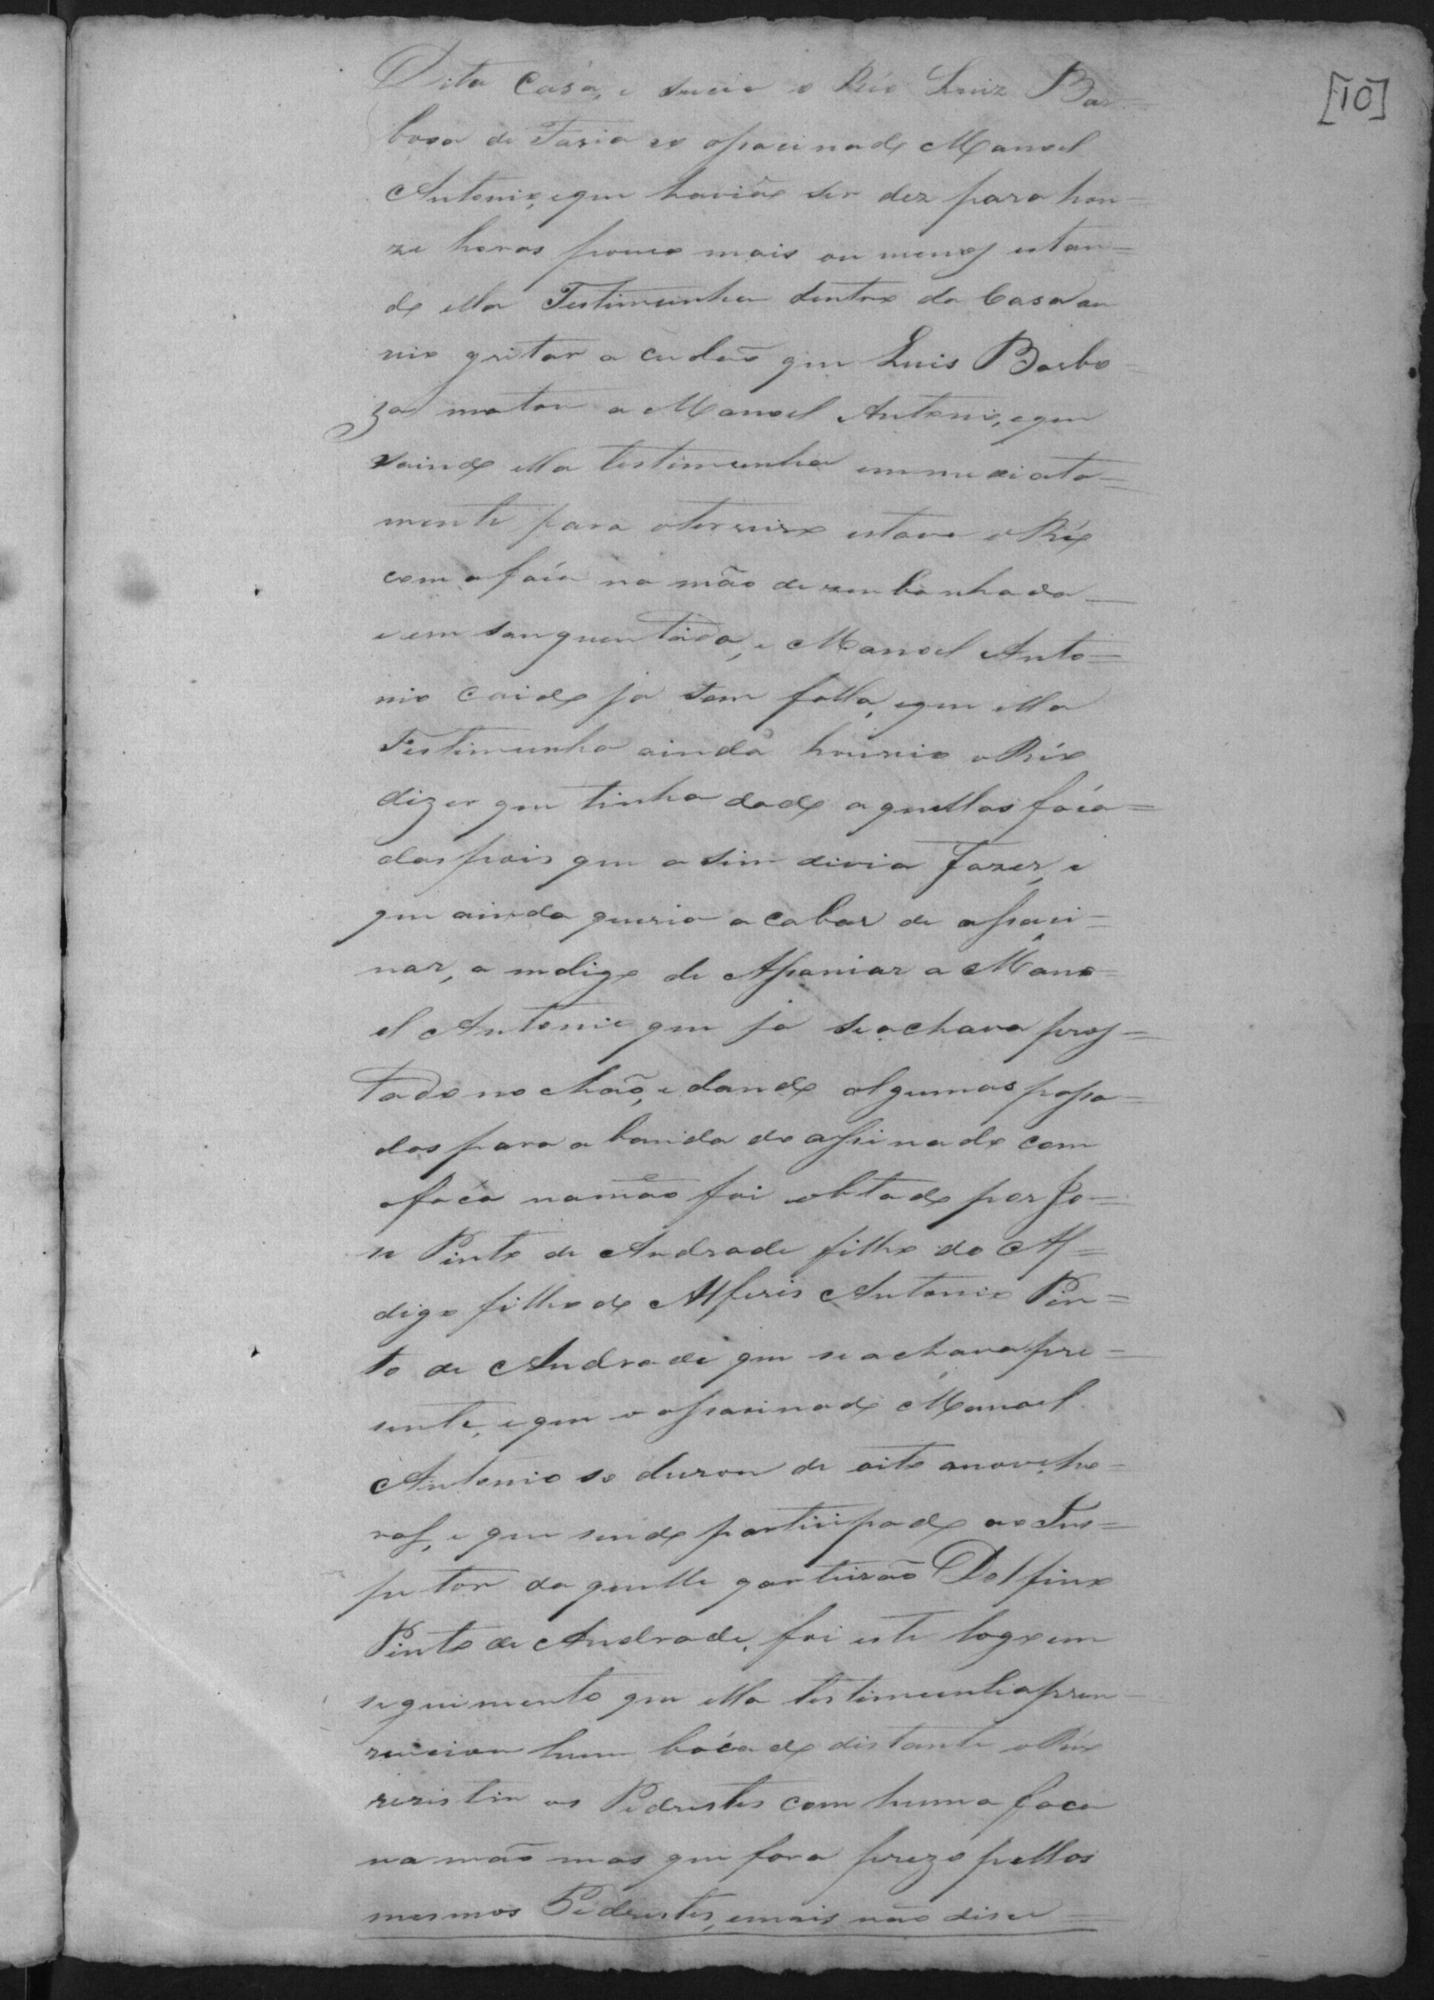 [10]
Dita Casa, e sucia o Réo Luiz Bar=
boza de Faria eo aSacinado Manoel
Antonio, e que havião ser dez para hon=
ze horas pouco mais ou menos estan=
do ella Testimunha dentro da Casa ou
vio gritar a cudão que Luis Barbo
za matou a Manoel Antonio, e que
saindo ella testimunha immediata=
mente para oterreiro estava o Réo
com a faca na mão dezembanhada
e em sanguentada, e Manoel Anto=
nio Caido ja sem falla, e que ella
Testimunha ainda houvio o Réo
dizer que tinha dado aquellas faca=
das pois que asim divia Fazer, e
que ainda queria acabar de aSaci=
nar, a mdigo de ASaniar a Mano=
el Antonio que ja se achava pros=
tado no chão, e dando algumas paSa=
das para a banda do aSinado com
afaca namão foi obtado por Jo=
se Pinto de Andrade filho do Af=
digo filho do Alferis Antonio Pin=
to de Andrade que se achava pre=
sente, e que o aSacinado Manoel
Antonio so durou de oito anove ho=
ras, e que sendo participado ao Ins=
petor daquelle garteirão Delfino
Pinto de Andrade, foi este logo em
seguimento que ella testimunha prezen
ciou hum bócado distante o Réo
rezistiu os Pedrestes com huma faca
na mão mas que fora prezo pellos
mesmos Pedrestes, emais não dice=